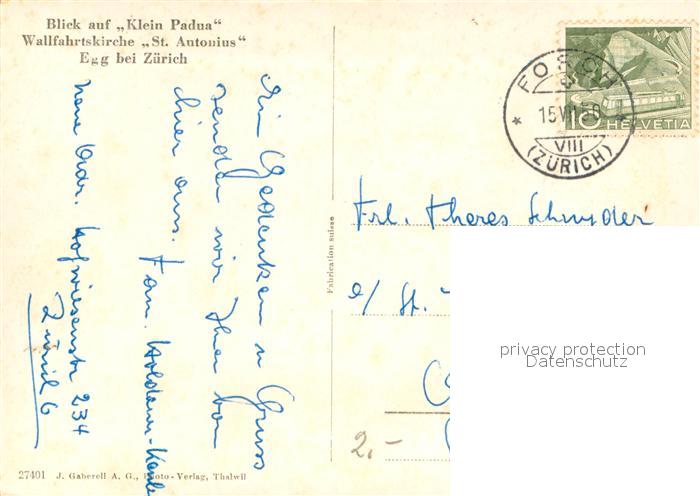 Blick auf „Klein Padua"
Wallfahrtskirche „St. Antonius"
Egg bei Zürich
Ein Gedenken u Gruss
senden wir Ihnen von
hier aus.
Fam.
Neue Adr. Hofwiesenstr 234
Zürich 6
FORCH
15.VII.50
VIII
(ZÜRICH)
10 HELVETIA
Fabrication suisse
Frl. Theres Schnyder
c/ St.
privacy protection
Datenschutz
2.-
27401 J. Gaberell A. G., Photo-Verlag, Thalwil